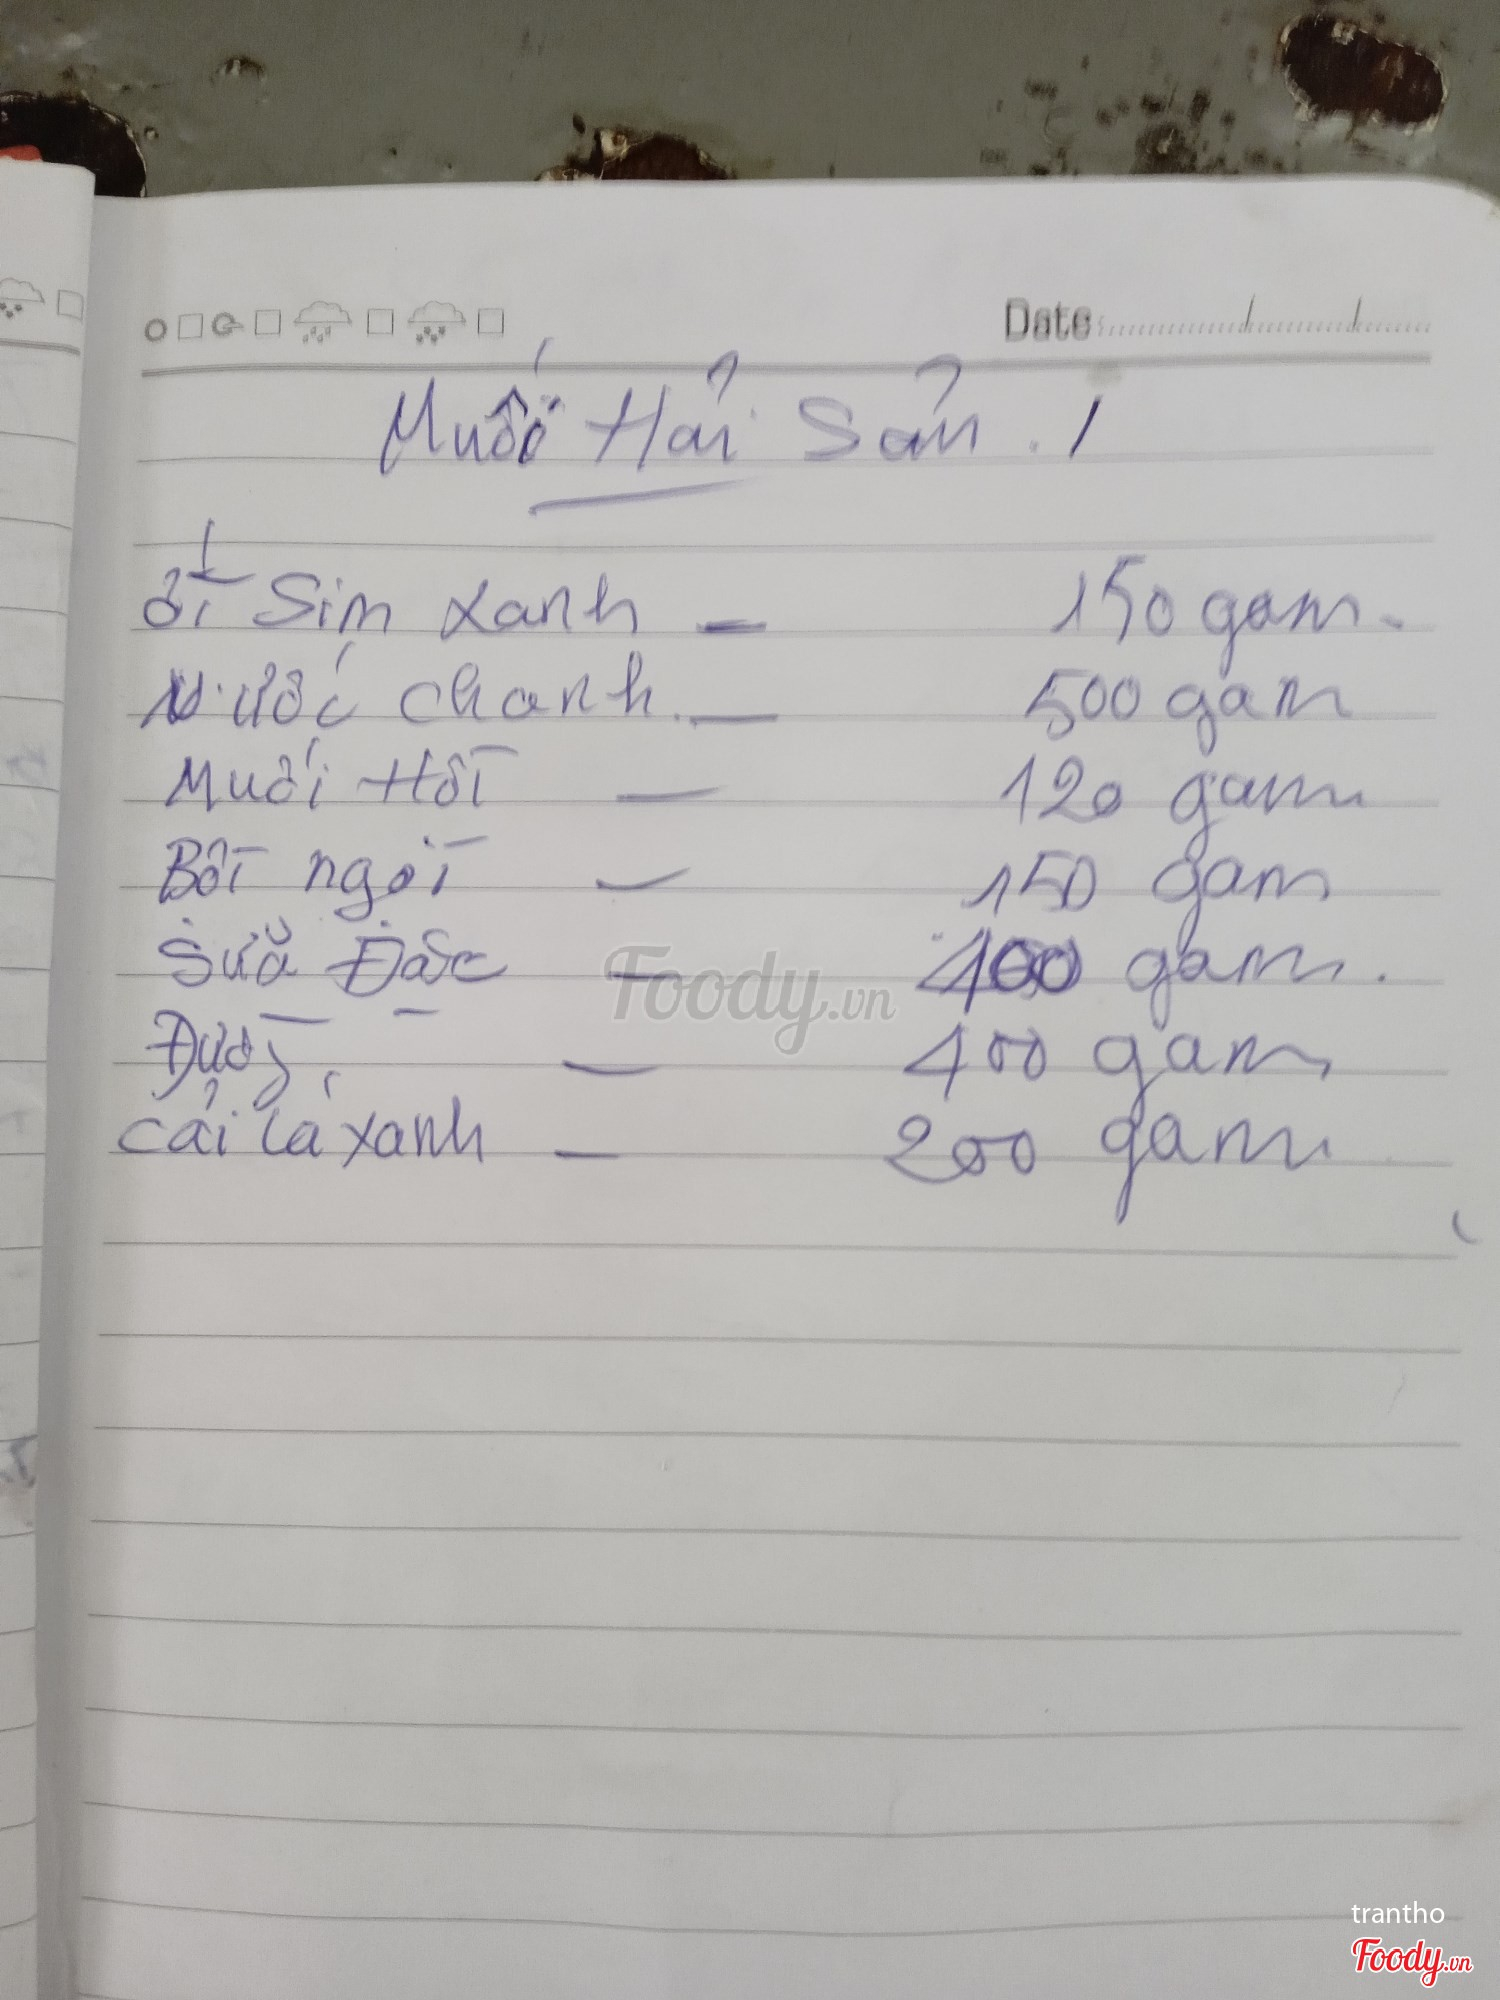 Date
Muối Hải Sản. 1
ớt Sim xanh — 150 gam.
Nước chanh. — 500 gam
Muối Hồt — 120 gam
Bột ngọt — 150 gam
Sữa Đặc — 400 gam.
Đường — 400 gam
cải lá xanh — 200 gam
Foody.vn
trantho
Foody.vn